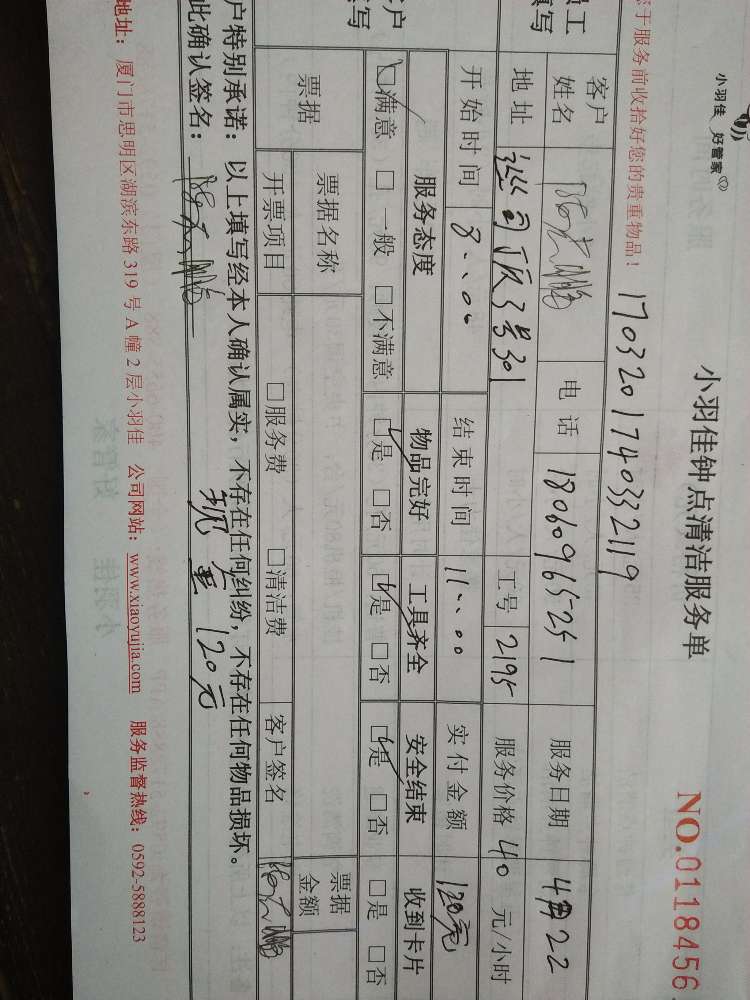 小羽佳 好管家
小羽佳钟点清洁服务单
NO.0118456
于服务前收拾好您的贵重物品!
1703201740332119
员工
填写
客户
姓名
电话
18060965251
服务日期
4月22
地址
3号301
工号
2195
服务价格 40 元/小时
开始时间
8:00
结束时间
11:00
实付金额
120元
客户
填写
服务态度
物品完好
工具齐全
安全结束
收到卡片
☑满意 □一般 □不满意
☑是 □否
☑是 □否
☑是 □否
□是 □否
票据
票据名称
票据
金额
开票项目
□服务费
□清洁费
客户签名
户特别承诺:以上填写经本人确认属实,不存在任何纠纷,不存在任何物品损坏。
此确认签名:
现金 120元
地址:厦门市思明区湖滨东路 319 号 A 幢 2 层小羽佳 公司网站:www.xiaoyujia.com 服务监督热线:0592-5888123